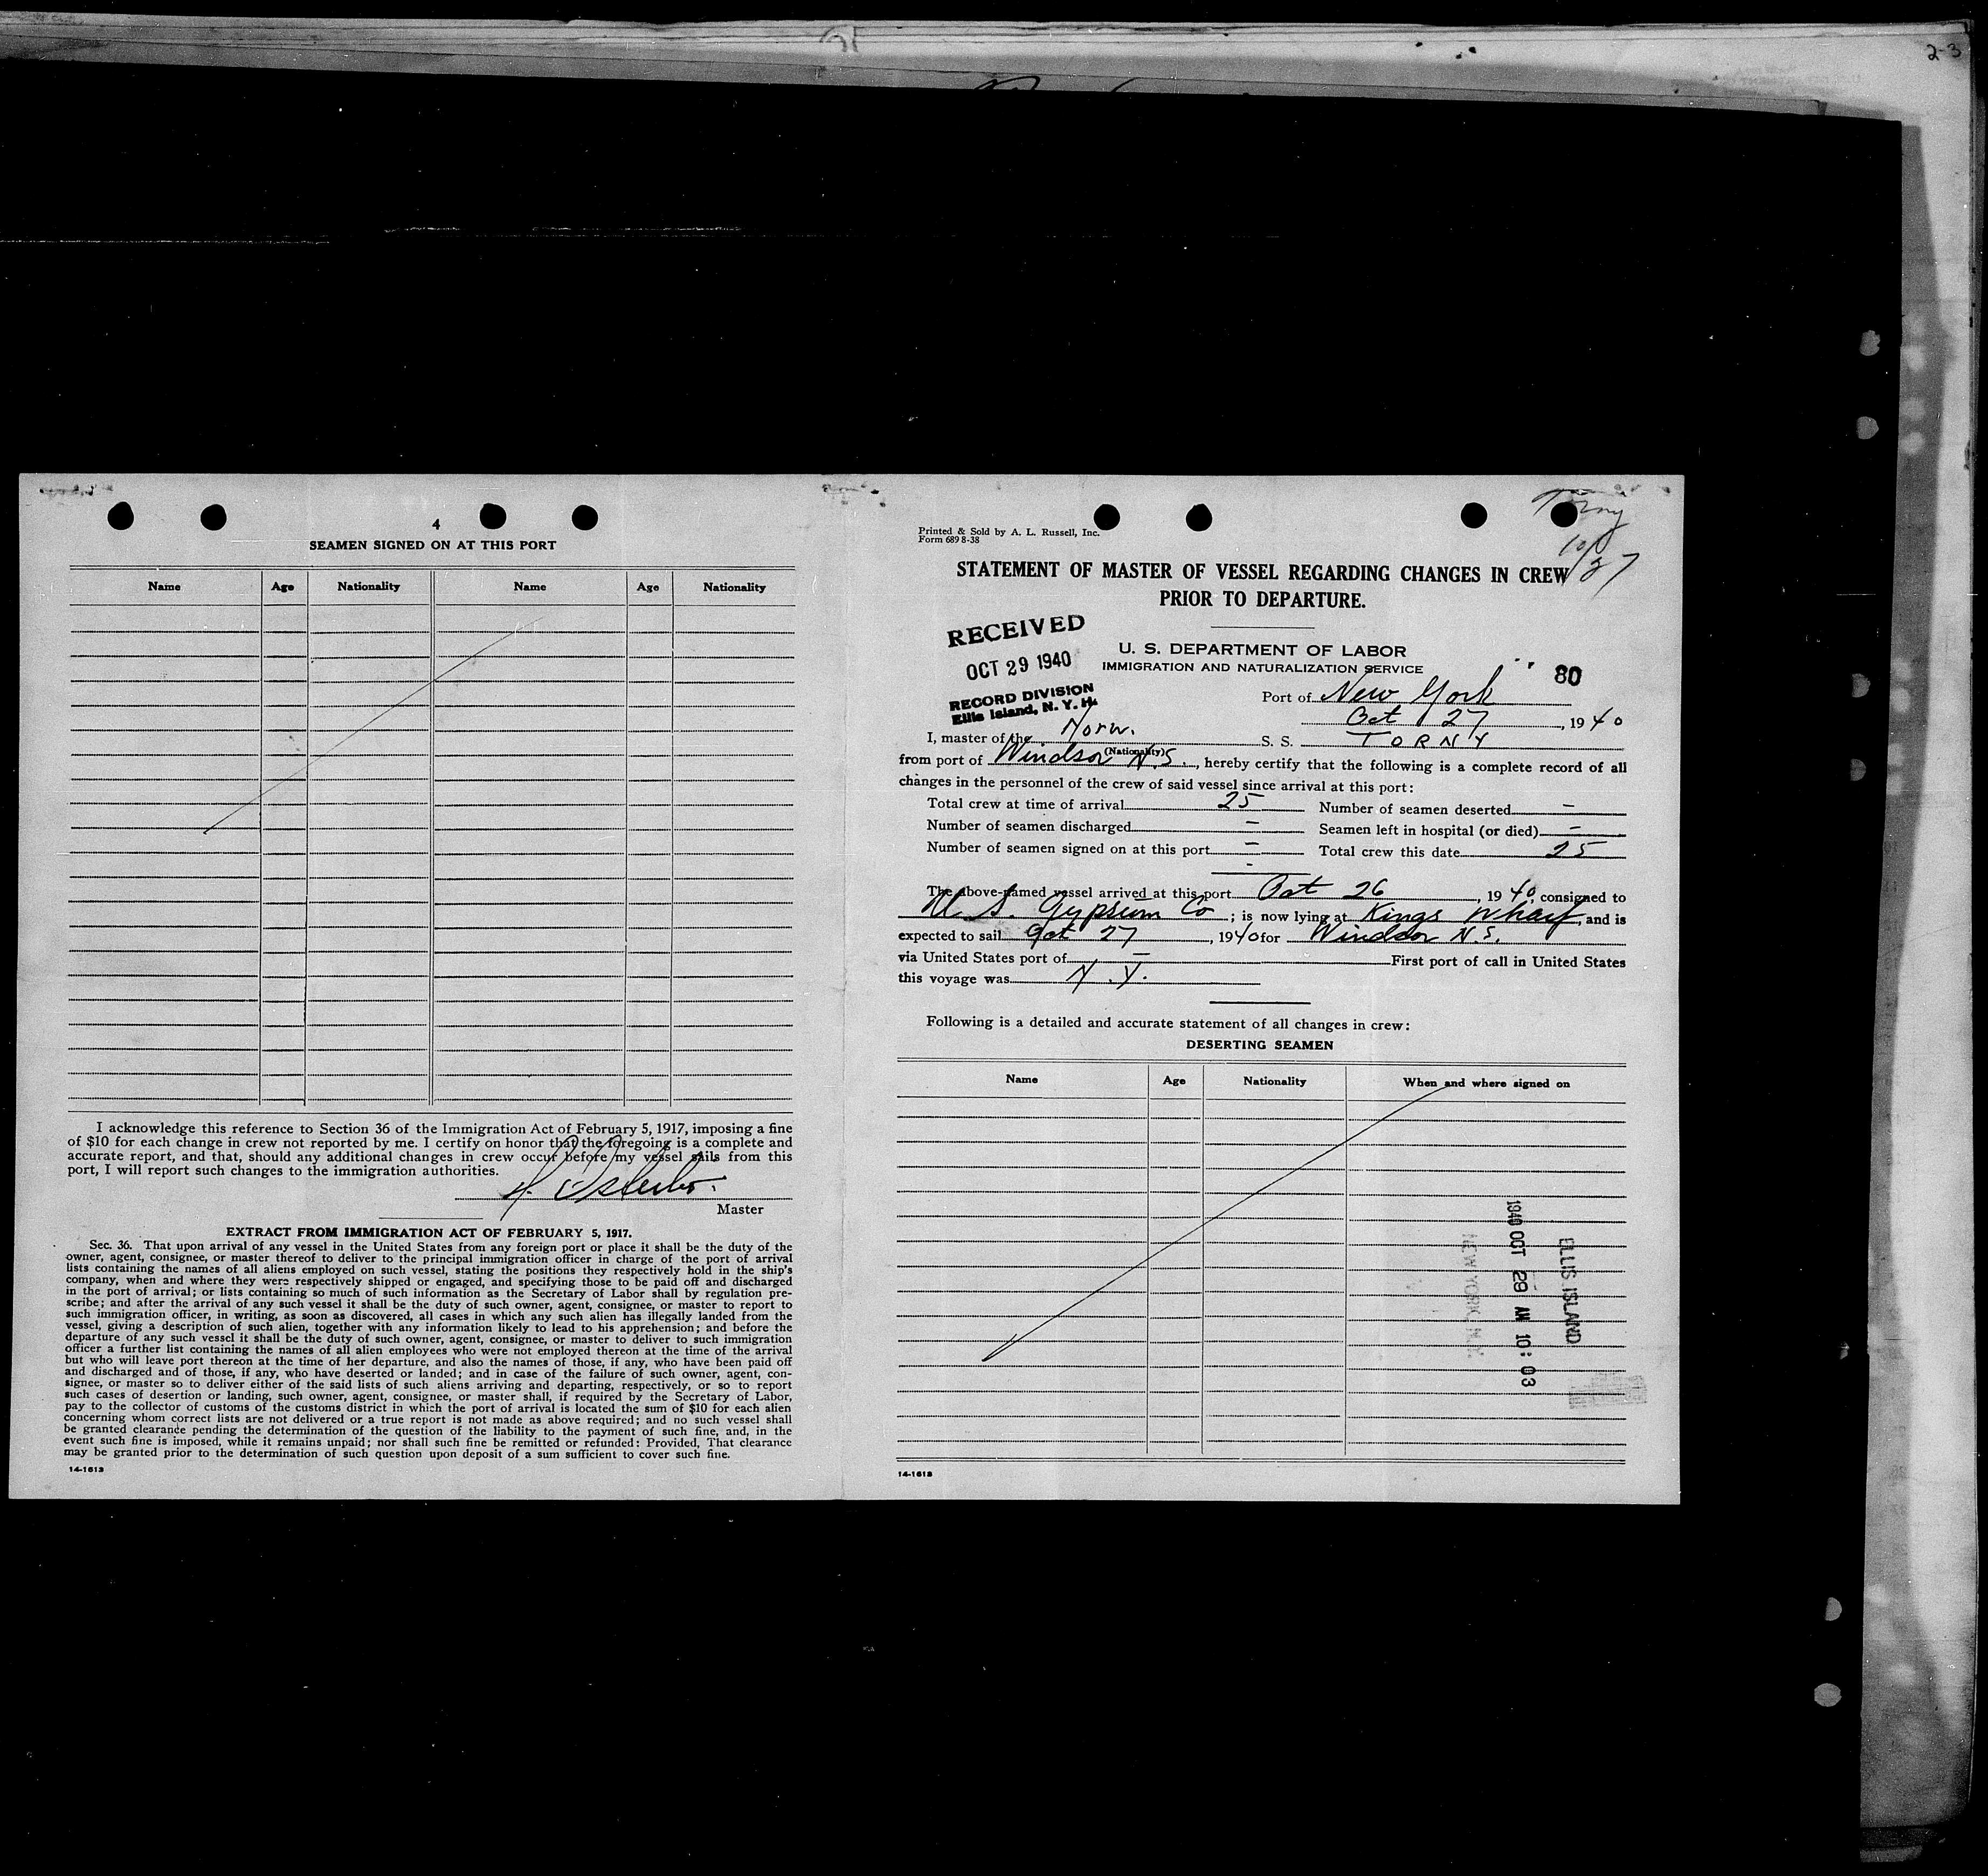 2-3
4
SEAMEN SIGNED ON AT THIS PORT
Name Age Nationality Name Age Nationality
I acknowledge this reference to Section 36 of the Immigration Act of February 5, 1917, imposing a fine
of $10 for each change in crew not reported by me. I certify on honor that the foregoing is a complete and
accurate report, and that, should any additional changes in crew occur before my vessel sails from this
port, I will report such changes to the immigration authorities.
Master
EXTRACT FROM IMMIGRATION ACT OF FEBRUARY 5, 1917.
Sec. 36. That upon arrival of any vessel in the United States from any foreign port or place it shall be the duty of the
owner, agent, consignee, or master thereof to deliver to the principal immigration officer in charge of the port of arrival
lists containing the names of all aliens employed on such vessel, stating the positions they respectively hold in the ship's
company, when and where they were respectively shipped or engaged, and specifying those to be paid off and discharged
in the port of arrival; or lists containing so much of such information as the Secretary of Labor shall by regulation pre-
scribe; and after the arrival of any such vessel it shall be the duty of such owner, agent, consignee, or master to report to
such immigration officer, in writing, as soon as discovered, all cases in which any such alien has illegally landed from the
vessel, giving a description of such alien, together with any information likely to lead to his apprehension; and before the
departure of any such vessel it shall be the duty of such owner, agent, consignee, or master to deliver to such immigration
officer a further list containing the names of all alien employees who were not employed thereon at the time of the arrival
but who will leave port thereon at the time of her departure, and also the names of those, if any, who have been paid off
and discharged and of those, if any, who have deserted or landed; and in case of the failure of such owner, agent, con-
signee, or master so to deliver either of the said lists of such aliens arriving and departing, respectively, or so to report
such cases of desertion or landing, such owner, agent, consignee, or master shall, if required by the Secretary of Labor,
pay to the collector of customs of the customs district in which the port of arrival is located the sum of $10 for each alien
concerning whom correct lists are not delivered or a true report is not made as above required; and no such vessel shall
be granted clearance pending the determination of the question of the liability to the payment of such fine, and, in the
event such fine is imposed, while it remains unpaid; nor shall such fine be remitted or refunded: Provided, That clearance
may be granted prior to the determination of such question upon deposit of a sum sufficient to cover such fine.
14-1613
Torny
10/27
Printed & Sold by A. L. Russell, Inc.
Form 689 8-38
STATEMENT OF MASTER OF VESSEL REGARDING CHANGES IN CREW
PRIOR TO DEPARTURE.
RECEIVED
OCT 29 1940
RECORD DIVISION
Ellis Island, N. Y. H.
U. S. DEPARTMENT OF LABOR
IMMIGRATION AND NATURALIZATION SERVICE
80
Port of New York
Oct 27, 1940
I, master of the Norw. S. S. TORNY
(Nationality)
from port of Windsor N.S., hereby certify that the following is a complete record of all
changes in the personnel of the crew of said vessel since arrival at this port:
Total crew at time of arrival 25 Number of seamen deserted –
Number of seamen discharged – Seamen left in hospital (or died) –
Number of seamen signed on at this port – Total crew this date 25
The above-named vessel arrived at this port Oct 26, 1940, consigned to
U. S. Gypsum Co; is now lying at Kings Wharf, and is
expected to sail Oct 27, 1940 for Windsor N.S.
via United States port of – First port of call in United States
this voyage was N.Y.
Following is a detailed and accurate statement of all changes in crew:
DESERTING SEAMEN
Name Age Nationality When and where signed on
1940 OCT 29 AM 10:03
ELLIS ISLAND
NEW YORK, N.Y.
14-1613